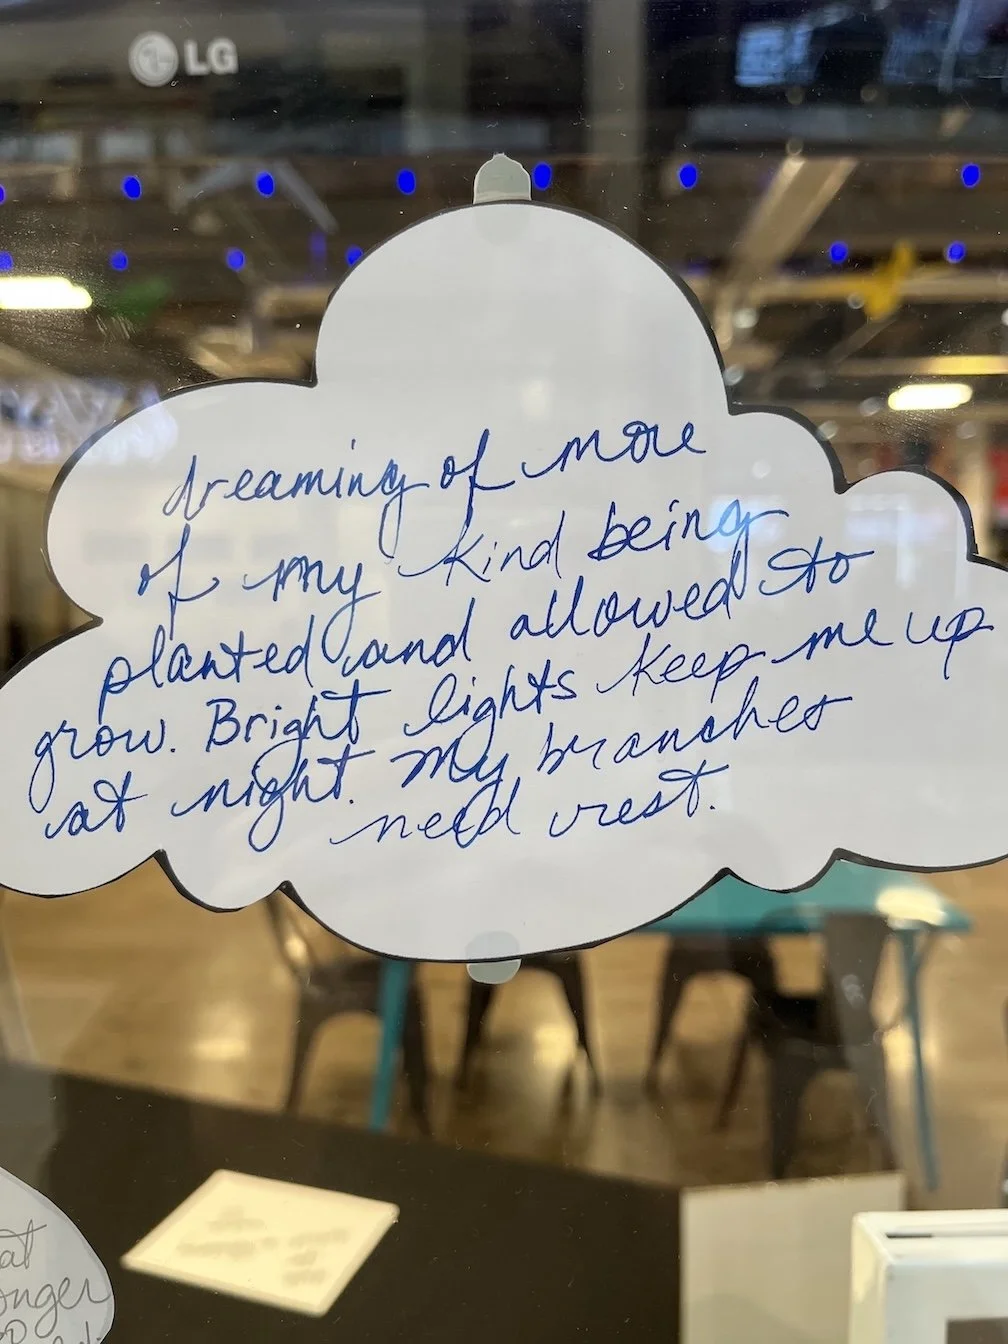 LG
dreaming of more
of my kind being
planted and allowed to
grow. Bright lights keep me up
at night. My branches
need rest.